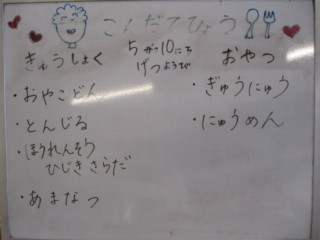 こんだてひょう
5がつ10にち
げつようび
きゅうしょく
・おやこどん
・とんじる
・ほうれんそう
ひじきさらだ
・あまなつ
おやつ
・ぎゅうにゅう
・にゅうめん